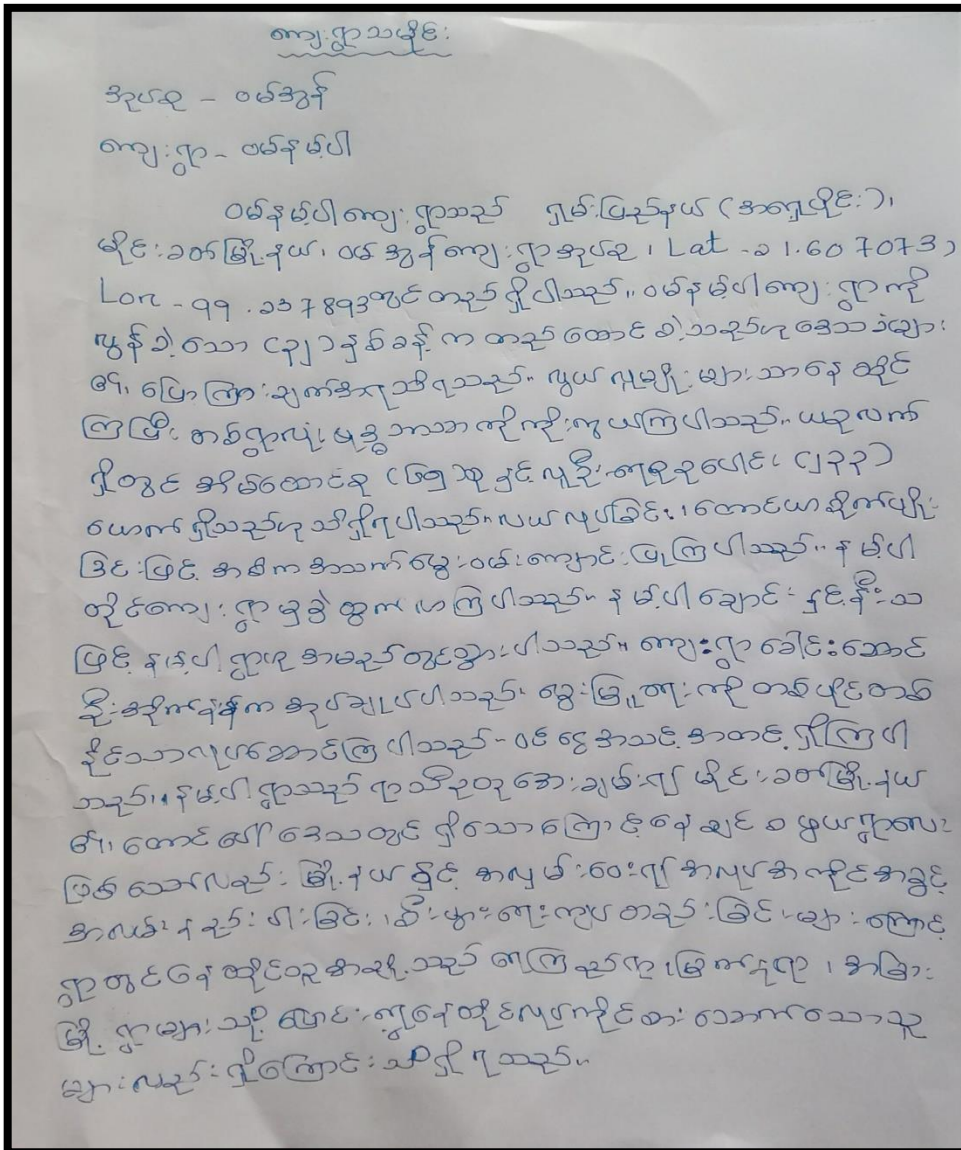 ကျေးရွာသမိုင်း
အုပ်စု - ဝမ်အွန်
ကျေးရွာ - ဝမ်နမ့်ပါ
ဝမ်နမ့်ပါကျေးရွာသည် ရှမ်းပြည်နယ် (အရှေ့ပိုင်း)၊
မိုင်းခတ်မြို့နယ်၊ ဝမ်အွန်ကျေးရွာအုပ်စု၊ Lat - ၁ 1.60 7073,
Lon - ၅၅ .၁၁7893တွင် တည်ရှိပါသည်။ ဝမ်နမ့်ပါကျေးရွာကို
လွန်ခဲ့သော နှစ်ခန့်က တည်ထောင်ခဲ့သည်ဟု ဒေသခံများ
၏ ပြောကြားချက်အရ သိရသည်။ လူမျိုးများသာနေထိုင်
ကြပြီး တစ်ရွာလုံး ဗုဒ္ဓဘာသာကိုကိုးကွယ်ကြပါသည်။ ယခုလက်
ရှိတွင် အိမ်ထောင်စု နှင့် လူဦးရေစုစုပေါင်း (၂၃၃)
ယောက်ရှိသည်ဟု သိရှိရပါသည်။ လယ်လုပ်ခြင်း၊ တောင်ယာစိုက်ပျိုး
ခြင်းဖြင့် အဓိကအသက်မွေးဝမ်းကျောင်းပြုကြပါသည်။ နမ့်ပါ
တိုင်ကျေးရွာမှခွဲထွက်လာကြပါသည်။ နမ့်ပါချောင်းနှင့်နီးသ
ဖြင့် နမ့်ပါရွာဟုအမည်တွင်သွားပါသည်။ ကျေးရွာခေါင်းဆောင်
ဦးအိုက်နန်က အုပ်ချုပ်ပါသည်။ မွေးမြူရေးကို တစ်ပိုင်တစ်
နိုင်သာလုပ်ဆောင်ကြပါသည်။ ဝင်ငွေအသင့်အတင့်ရှိကြပါ
သည်။ နမ့်ပါရွာသည် ရာသီဥတုအေးချမ်း၍ မိုင်းခတ်မြို့နယ်
၏ တောင်ပေါ်ဒေသတွင် ရှိသောကြောင့် နေချင်စဖွယ်ရွာလေး
ဖြစ်သော်လည်း မြို့နယ်နှင့် အလှမ်းဝေး၍ အလုပ်အကိုင်အခွင့်
အလမ်းနည်းပါးခြင်း၊ စီးပွားရေးကျပ်တည်းခြင်းများကြောင့်
ရွာတွင်နေထိုင်သူအချို့သည် တာကြည်ရွာ၊ မြက်နုရွာ၊ အခြား
မြို့ရွာများသို့ ပြောင်းရွှေ့နေထိုင်လုပ်ကိုင်စားသောက်သောသူ
များလည်းရှိကြောင်းသိရှိရသည်။